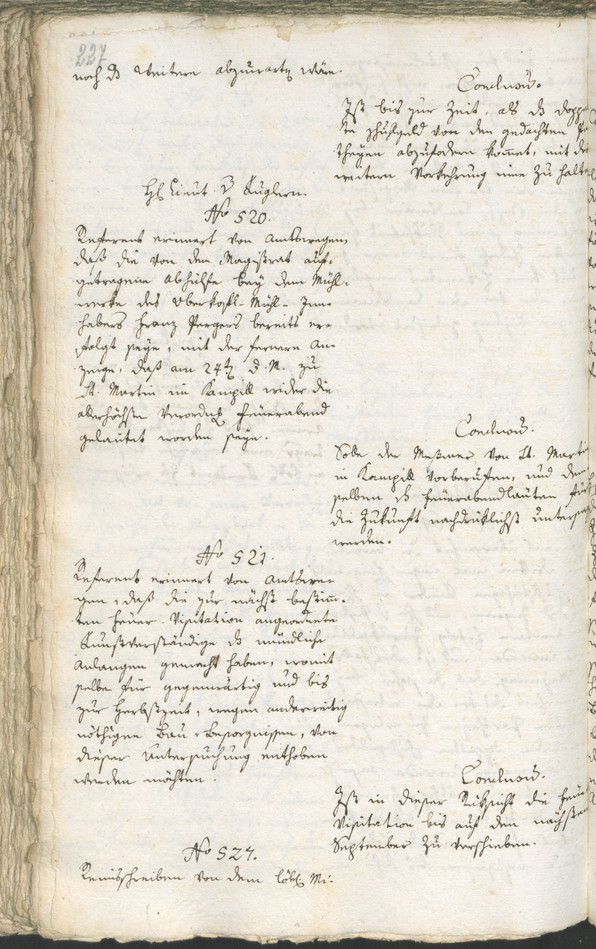 227
noch ds weitere abzuwartn wäre.
Conclusu.
Ist bis zur Zeit, als ds dopp
te von den gedachten
abzufodern kommt, mit der
weitern Vorkehrung inne zu halten
H: Lieut. v Küglern.
No 520.
Referent erinnert von Amtswegen,
daß die von dem Magistrat auf-
getragene Abhülfe bey dem Mühl-
werke des Mühl- Inn-
habers Franz bereits er-
folgt seye, mit der fernern An-
zeige, daß am 24tn d. M. zu
St. Martin im Kampill wider die
allerhöchste Verordng Feuerabend
geläutet worden seye.
Conclusu.
Solle der Meßmer von St. Marti
in Kampill vorberufen, und dem
selben ds Feuerabendläuten für
die Zukunft nachdrüklichst untersagt
werden.
No 521.
Referent erinnert von Amtswe-
gen, daß die zur nächst bestimm-
ten Feuer-Visitation angeordnete
Kunstverständige ds mündliche
Anlangen gemacht haben, womit
selbe für gegenwärtig und bis
zur Herbstzeit, wegen anderweitig
nöthigen Bau-Besorgnissen, von
dieser Untersuchung enthoben
werden möchten.
Conclusu.
Ist in dieser Rüksicht die Feuer
Visitation bis auf den nächsten
September zu verschieben.
No 527.
Remisschreiben von dem löbl. Mi-